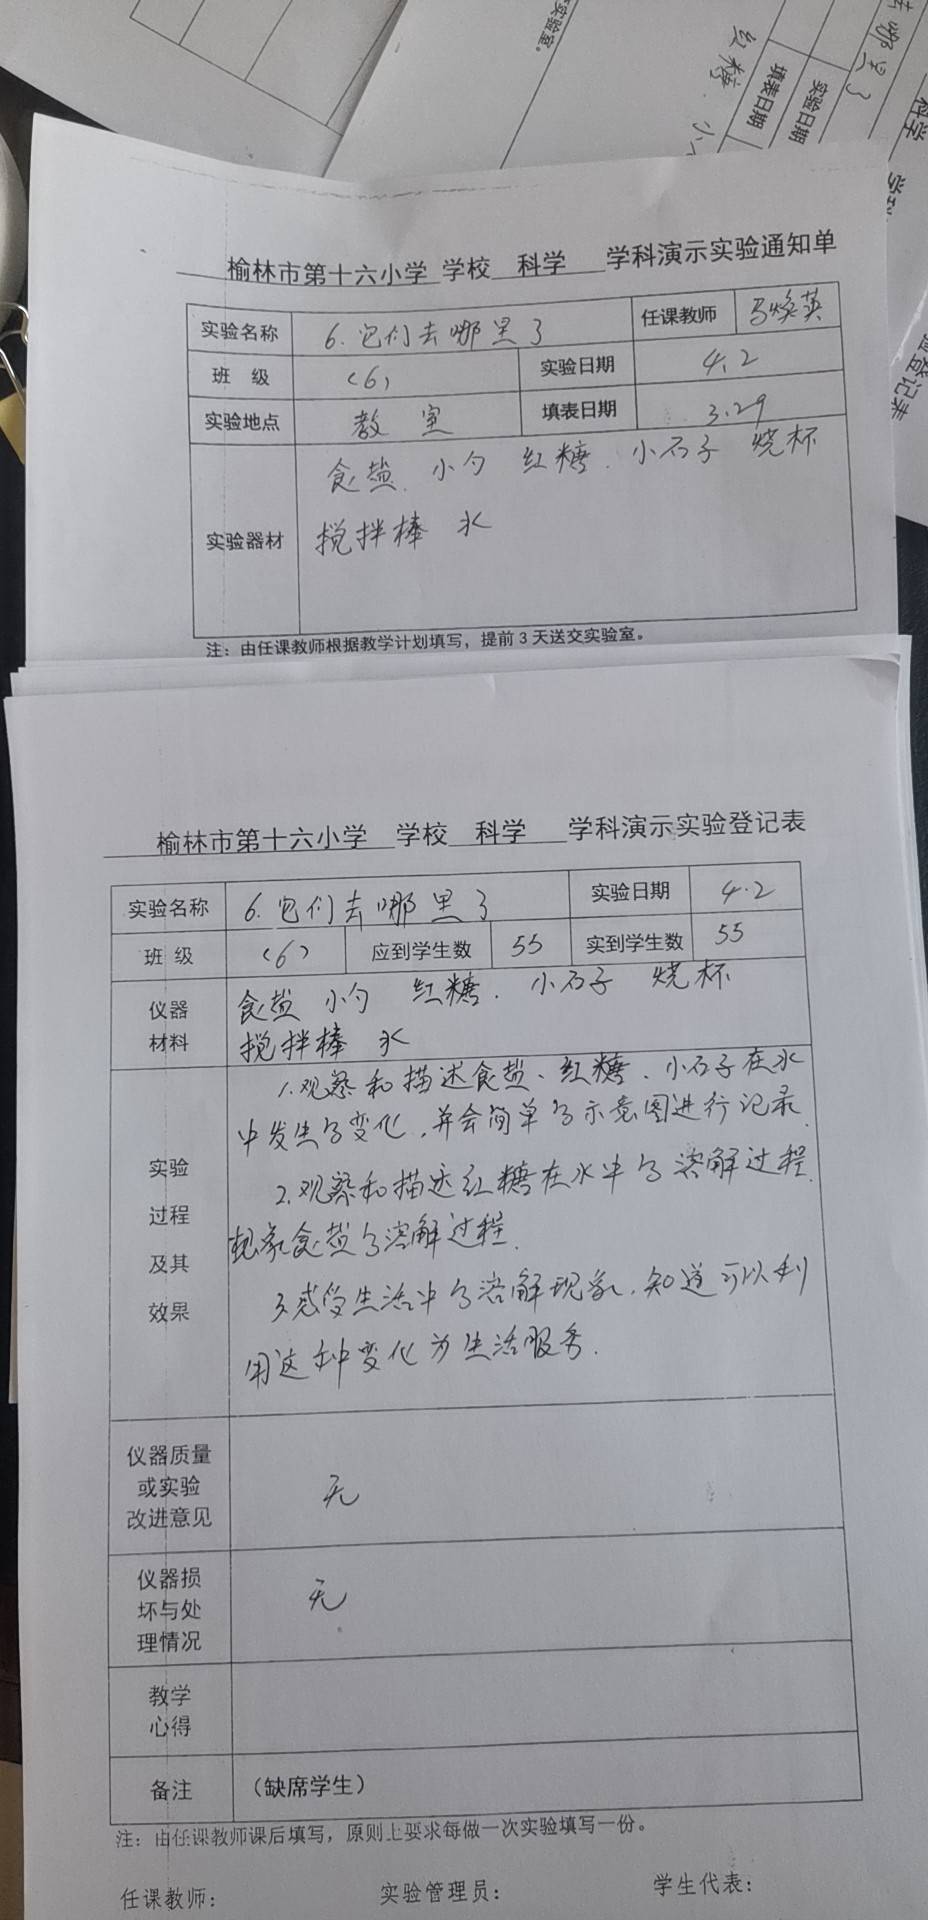 实验室。
红糖 小
填表日期
实验日期
哪里了
科学
登记表
榆林市第十六小学 学校 科学 学科演示实验通知单
实验名称 6.它们去哪里了 任课教师 马焕英
班 级 (6) 实验日期 4.2
实验地点 教室 填表日期 3.29
食盐 小勺 红糖 小石子 烧杯
实验器材 搅拌棒 水
注：由任课教师根据教学计划填写，提前 3 天送交实验室。
榆林市第十六小学 学校 科学 学科演示实验登记表
实验名称 6.它们去哪里了 实验日期 4.2
班 级 (6) 应到学生数 55 实到学生数 55
仪器 食盐 小勺 红糖. 小石子 烧杯
材料 搅拌棒 水
1.观察和描述食盐、红糖、小石子在水
中发生的变化,并会简单的示意图进行记录.
实验
2.观察和描述红糖在水中的溶解过程.
过程
想象食盐的溶解过程.
及其
3.感受生活中的溶解现象,知道可以利
效果
用这种变化为生活服务.
仪器质量
或实验 无
改进意见
仪器损
坏与处 无
理情况
教学
心得
备注 （缺席学生）
注：由任课教师课后填写，原则上要求每做一次实验填写一份。
任课教师： 实验管理员： 学生代表：